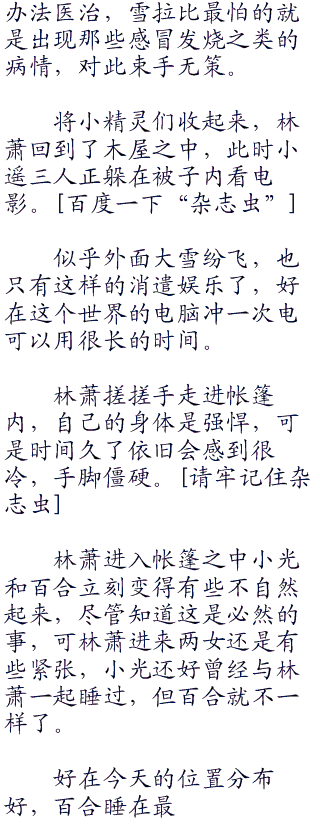 办法医治，雪拉比最怕的就
是出现那些感冒发烧之类的
病情，对此束手无策。
将小精灵们收起来，林
萧回到了木屋之中，此时小
遥三人正躲在被子内看电
影。[百度一下“杂志虫”]
似乎外面大雪纷飞，也
只有这样的消遣娱乐了，好
在这个世界的电脑冲一次电
可以用很长的时间。
林萧搓搓手走进帐篷
内，自己的身体是强悍，可
是时间久了依旧会感到很
冷，手脚僵硬。[请牢记住杂
志虫]
林萧进入帐篷之中小光
和百合立刻变得有些不自然
起来，尽管知道这是必然的
事，可林萧进来两女还是有
些紧张，小光还好曾经与林
萧一起睡过，但百合就不一
样了。
好在今天的位置分布
好，百合睡在最